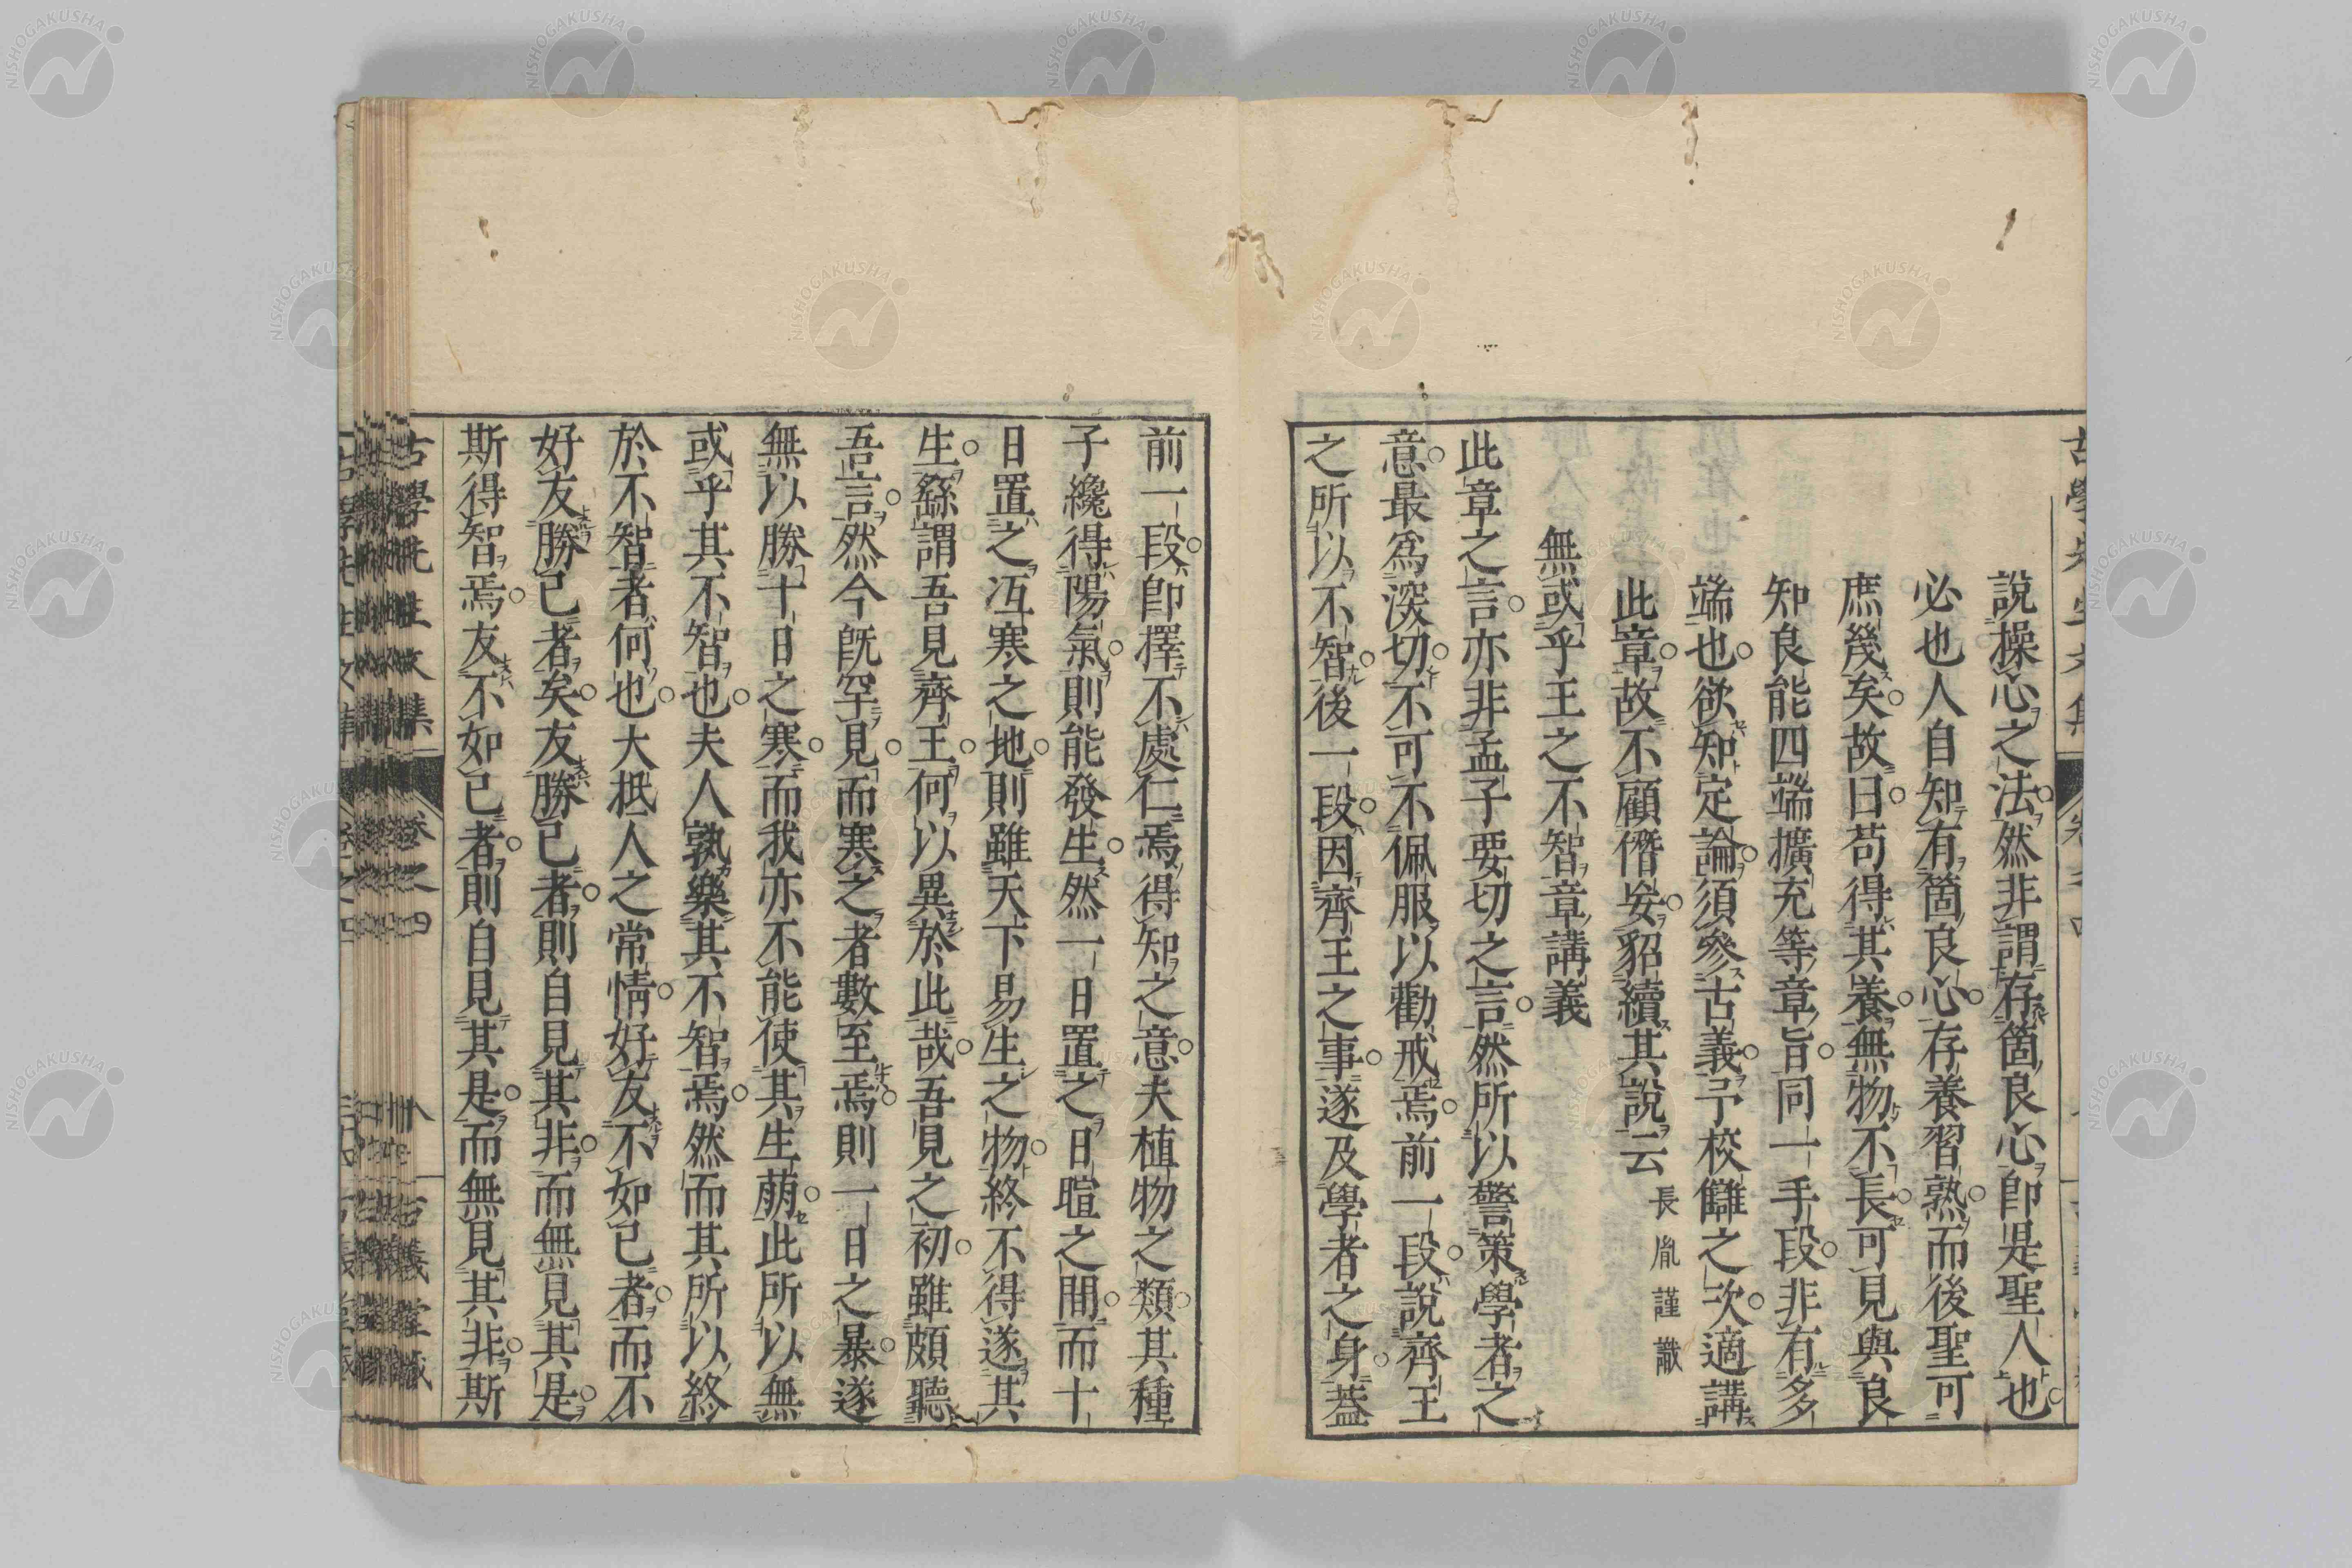 說操心之法然非謂存箇良心卽是聖人也
必也人自知有箇良心存養習熟而後聖可
庶幾矣故曰苟得其養無物不長可見與良
知良能四端擴充等章旨同一手段非有多
端也欲知定論須參古義予校讎之次適講
此章故不顧僭妄貂續其說云 長胤謹識
無或乎王之不智章講義
此章之言亦非孟子要切之言然所以警策學者之
意最爲深切不可不佩服以勸戒焉前一段說齊王
之所以不智後一段因齊王之事遂及學者之身蓋
前一段卽擇不處仁焉得知之意夫植物之類其種
子纔得陽氣則能發生然一日置之日暄之間而十
日置之冱寒之地則雖天下易生之物終不得遂其
生繇謂吾見齊王何以異於此哉吾見之初雖頗聽
吾言然今旣罕見而寒之者數至焉則一日之暴遂
無以勝十日之寒而我亦不能使其生萠此所以無
或乎其不智也夫人孰樂其不智焉然而其所以終
於不智者何也大抵人之常情好友不如己者而不
好友勝己者矣友勝己者則自見其非而無見其是
斯得智焉友不如己者則自見其是而無見其非斯
古學先生文集 卷之四 八 古義堂藏
NISHOGAKUSHA